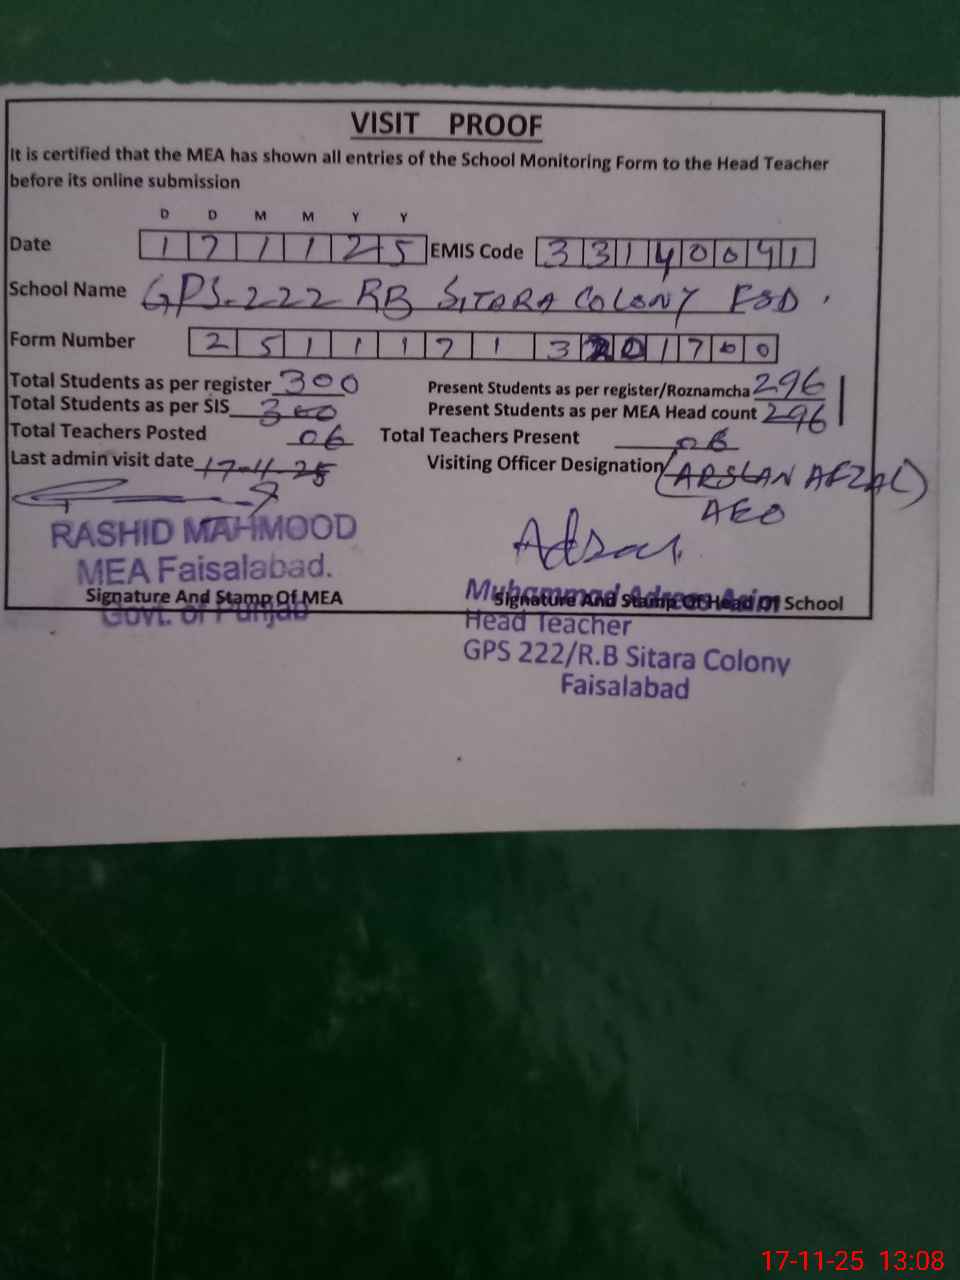 VISIT PROOF
It is certified that the MEA has shown all entries of the School Monitoring Form to the Head Teacher
before its online submission
D D M M Y Y
Date 1 7 1 1 2 5 EMIS Code 3 3 1 4 0 0 4 1
School Name GPS. 222 RB SITARA COLONY FSD.
Form Number 2 5 1 1 1 7 1 3 2 0 1 7 0 0
Total Students as per register 300 Present Students as per register/Roznamcha 296
Total Students as per SIS 300 Present Students as per MEA Head count 296
Total Teachers Posted 06 Total Teachers Present 06
Last admin visit date 17-11-25 Visiting Officer Designation (ARSLAN AFZAL)
AEO
RASHID MAHMOOD
MEA Faisalabad.
Signature And Stamp Of MEA
Govt. of Punjab
Muhammad Asim
Signature And Stamp Of Head Of School
Head Teacher
GPS 222/R.B Sitara Colony
Faisalabad
17-11-25 13:08